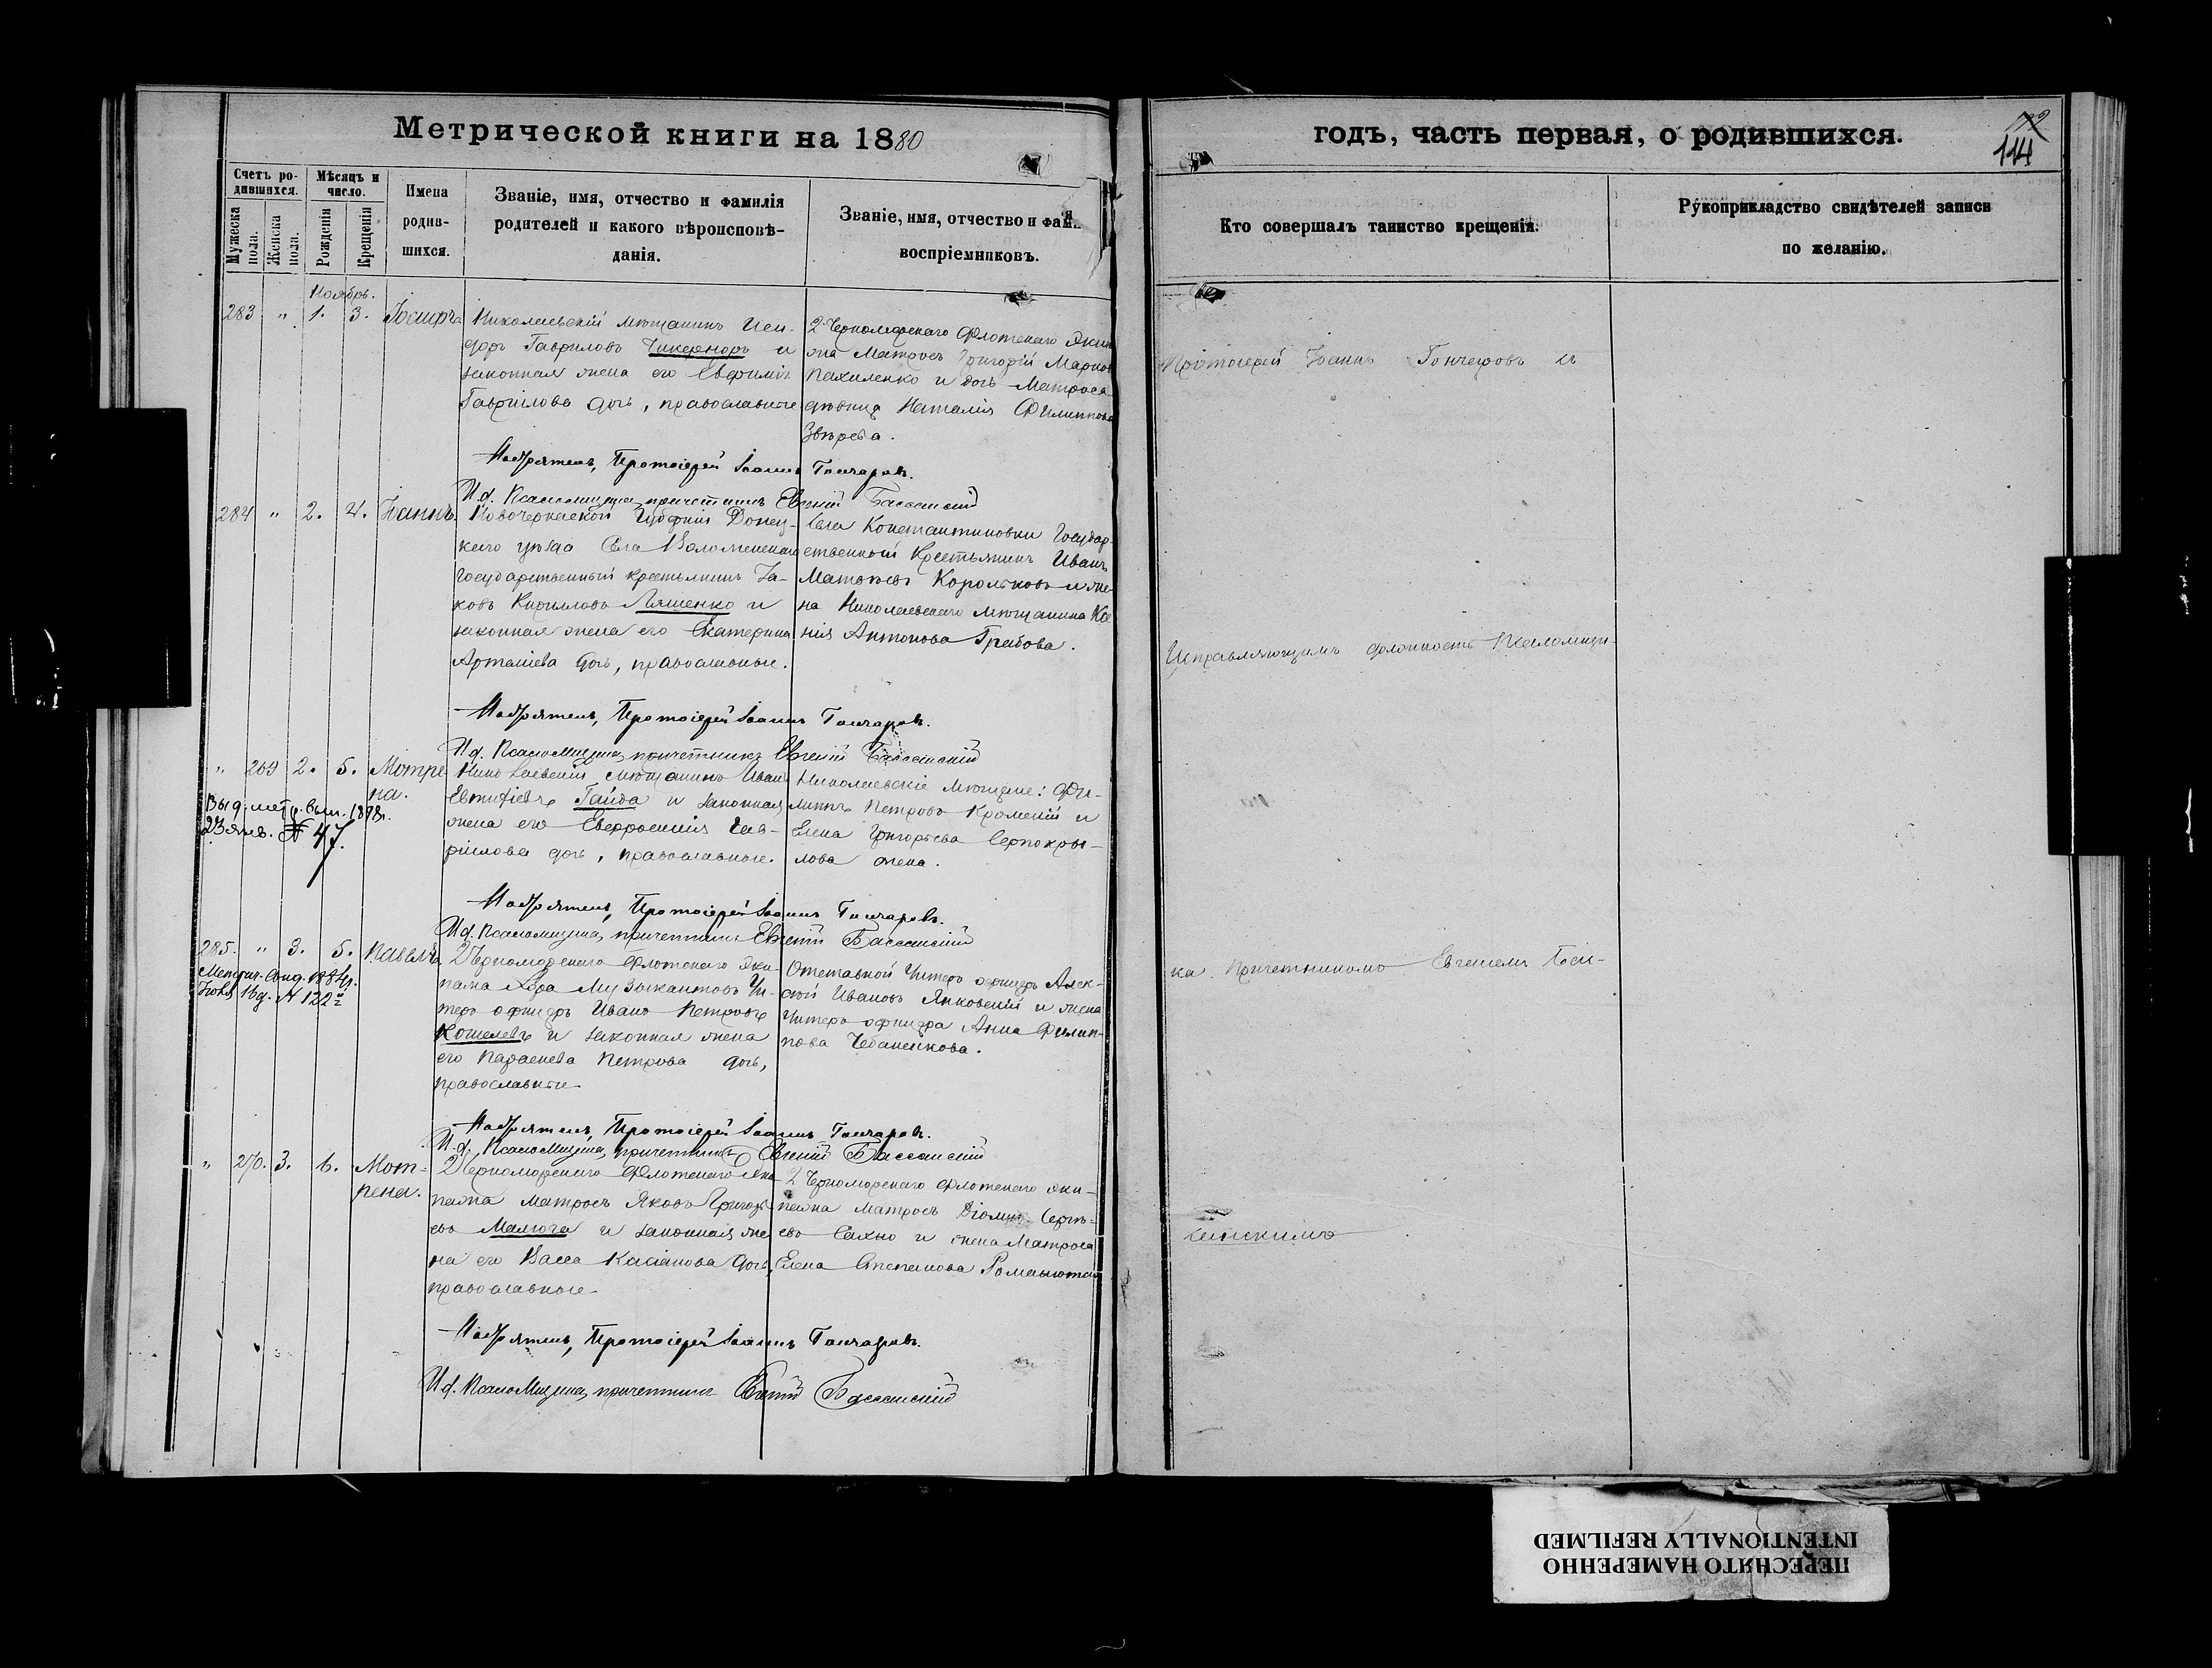 Метрической книги на 1880
годъ, часть первая, о родившихся.
114
Счетъ ро-
дившихся.
Мѣсяцъ и
число.
Мужеска
пола.
Женска
пола.
Рожденія
Крещенія
Имена
родив-
шихся.
Званіе, имя, отчество и фамилія
родителей и какого вѣроисповѣ-
данія.
Званіе, имя, отчество и фам.
воспріемниковъ.
Кто совершалъ таинство крещенія.
Рукоприкладство свидѣтелей записи
по желанію.
Ноябрь.
283 " 1. 3. Іосифъ
Николаевскій мѣщанинъ Иси-
доръ Гавриловъ Чикерноръ и
законная жена его Евфимія
Гаврилова дочь, православные
2 Черноморскаго Флотскаго Экип
жа Матросъ Григорій Марков
Пахиленко и дочь Матроса
дѣвица Наталія Филиппова
Звѣрева.
Настоятель, Протоіерей Іоаннъ Гончаровъ.
И.д. Псаломщика, причетникъ Евгеній Бассанскій
284 " 2. 4. Іоаннъ.
Новочеркаской Губерніи Донец-
каго уѣзда Села Воломенскаго
государственный крестьянинъ Іа-
ковъ Кирилловъ Ляшенко и
законная жена его Екатерина
Артаміева дочь, православные.
Села Константиновки Государ-
ственный Крестьянинъ Иванъ
Матвѣевъ Корольковъ и же-
на Николаевскаго мѣщанина Ксе
нія Антонова Грибова.
Настоятель, Протоіерей Іоаннъ Гончаровъ.
И.д. Псаломщика, причетникъ Евгеній Бассанскій
" 269 2. 5. Мотре
на.
Выд. метр. вып. 1898г.
23 янв. № 47.
Николаевскій мѣщанинъ Иван
Евтихіевъ Гайда и законная
жена его Евфросинія Гав-
рілова дочь, православные.
Николаевскіе Мѣщане: Фи-
липпъ Петровъ Кромскій и
Елена Григорьева Сернокры-
лова жена.
Настоятель, Протоіерей Іоаннъ Гончаровъ.
И.д. Псаломщика, причетникъ Евгеній Бассанскій
285. " 3. 5. Павелъ
2 Черноморскаго Флотскаго Эки-
пажа Хора Музыкантовъ Ун-
теръ офицеръ Иванъ Петровъ
Кошелевъ и законная жена
его Параскева Петрова дочь,
православные
Отставной Унтеръ офицеръ Алек-
сѣй Ивановъ Янковскій и жена
Унтеръ офицера Анна Филип-
пова Чебаненкова.
Настоятель, Протоіерей Іоаннъ Гончаровъ.
И.д. Псаломщика, причетникъ Евгеній Бассанскій
" 270. 3. 6. Мот-
рена.
2 Черноморскаго Флотскаго Эки
пажа матросъ Яковъ Григорь
евъ Малюга и законная же
на его Васса Касіанова дочь,
православные
2 Черноморскаго Флотскаго эки-
пажа Матросъ Діомид. Сергѣ-
евъ Сахно и жена Матроса
Елена Степанова Романюта
Настоятель, Протоіерей Іоаннъ Гончаровъ.
И.д. Псаломщика, причетникъ Евгеній Бассанскій
Протоіерей Іоаннъ Гончаровъ съ
Исправляющимъ должность Псаломщи-
ка Причетникомъ Евгеніемъ Бас-
санскимъ
ПЕРЕСНЯТО НАМЕРЕННО
INTENTIONALLY REFILMED